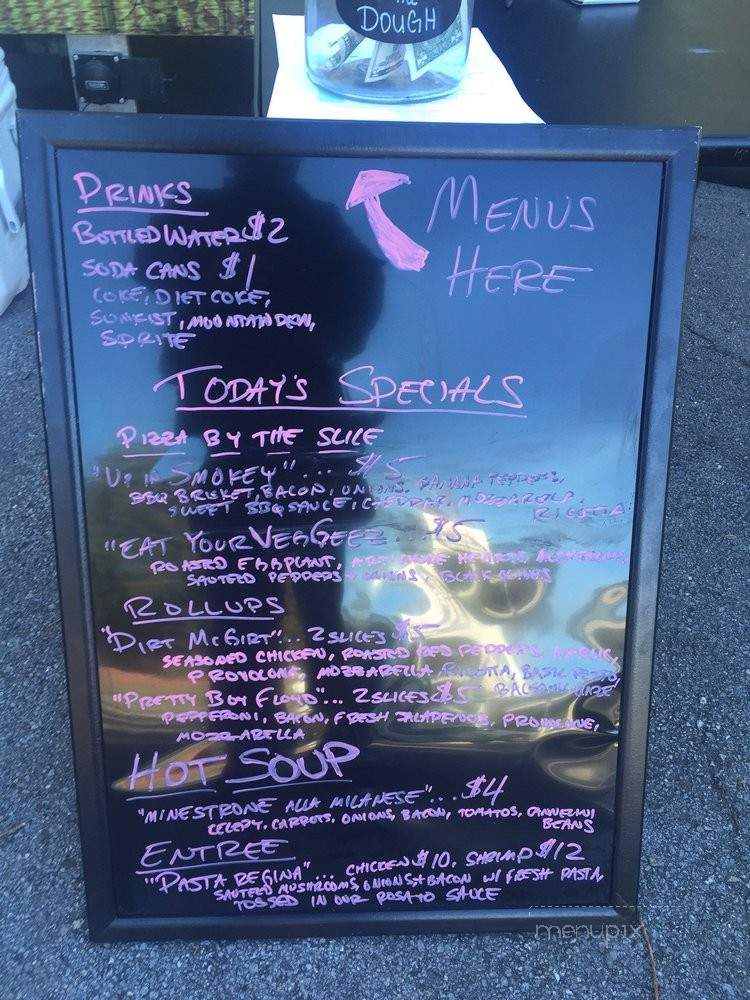 THE
DOUGH
DRINKS
BOTTLED WATER $2
SODA CANS $1
COKE, DIET COKE,
SUNKIST, MOUNTAIN DEW,
SPRITE
MENUS
HERE
TODAY'S SPECIALS
PIZZA BY THE SLICE
"UP IN SMOKEY"... $5
BBQ BRISKET, BACON, ONIONS, BANANA PEPPERS,
SWEET BBQ SAUCE, CHEDDAR, MOZZARELLA,
RICOTTA
"EAT YOUR VEGGEEZ"... $5
ROASTED EGGPLANT, ARTICHOKE HEARTS,
SAUTEED PEPPERS & ONIONS, BLACK OLIVES
ROLLUPS
"DIRT MCGIRT"... 2 SLICES $5
SEASONED CHICKEN, ROASTED RED PEPPERS, GARLIC,
PROVOLONE, MOZZARELLA, RICOTTA, BASIL PESTO,
BALSAMIC GLAZE
"PRETTY BOY FLOYD"... 2 SLICES $5
PEPPERONI, BACON, FRESH JALAPENOS, PROVOLONE,
MOZZARELLA
HOT SOUP
"MINESTRONE ALLA MILANESE"... $4
CELERY, CARROTS, ONIONS, BACON, TOMATOS, CANNELLINI
BEANS
ENTREE
"PASTA REGINA"... CHICKEN $10, SHRIMP $12
SAUTEED MUSHROOMS, ONIONS, + BACON W/ FRESH PASTA,
TOSSED IN OUR ROSATO SAUCE
menupix